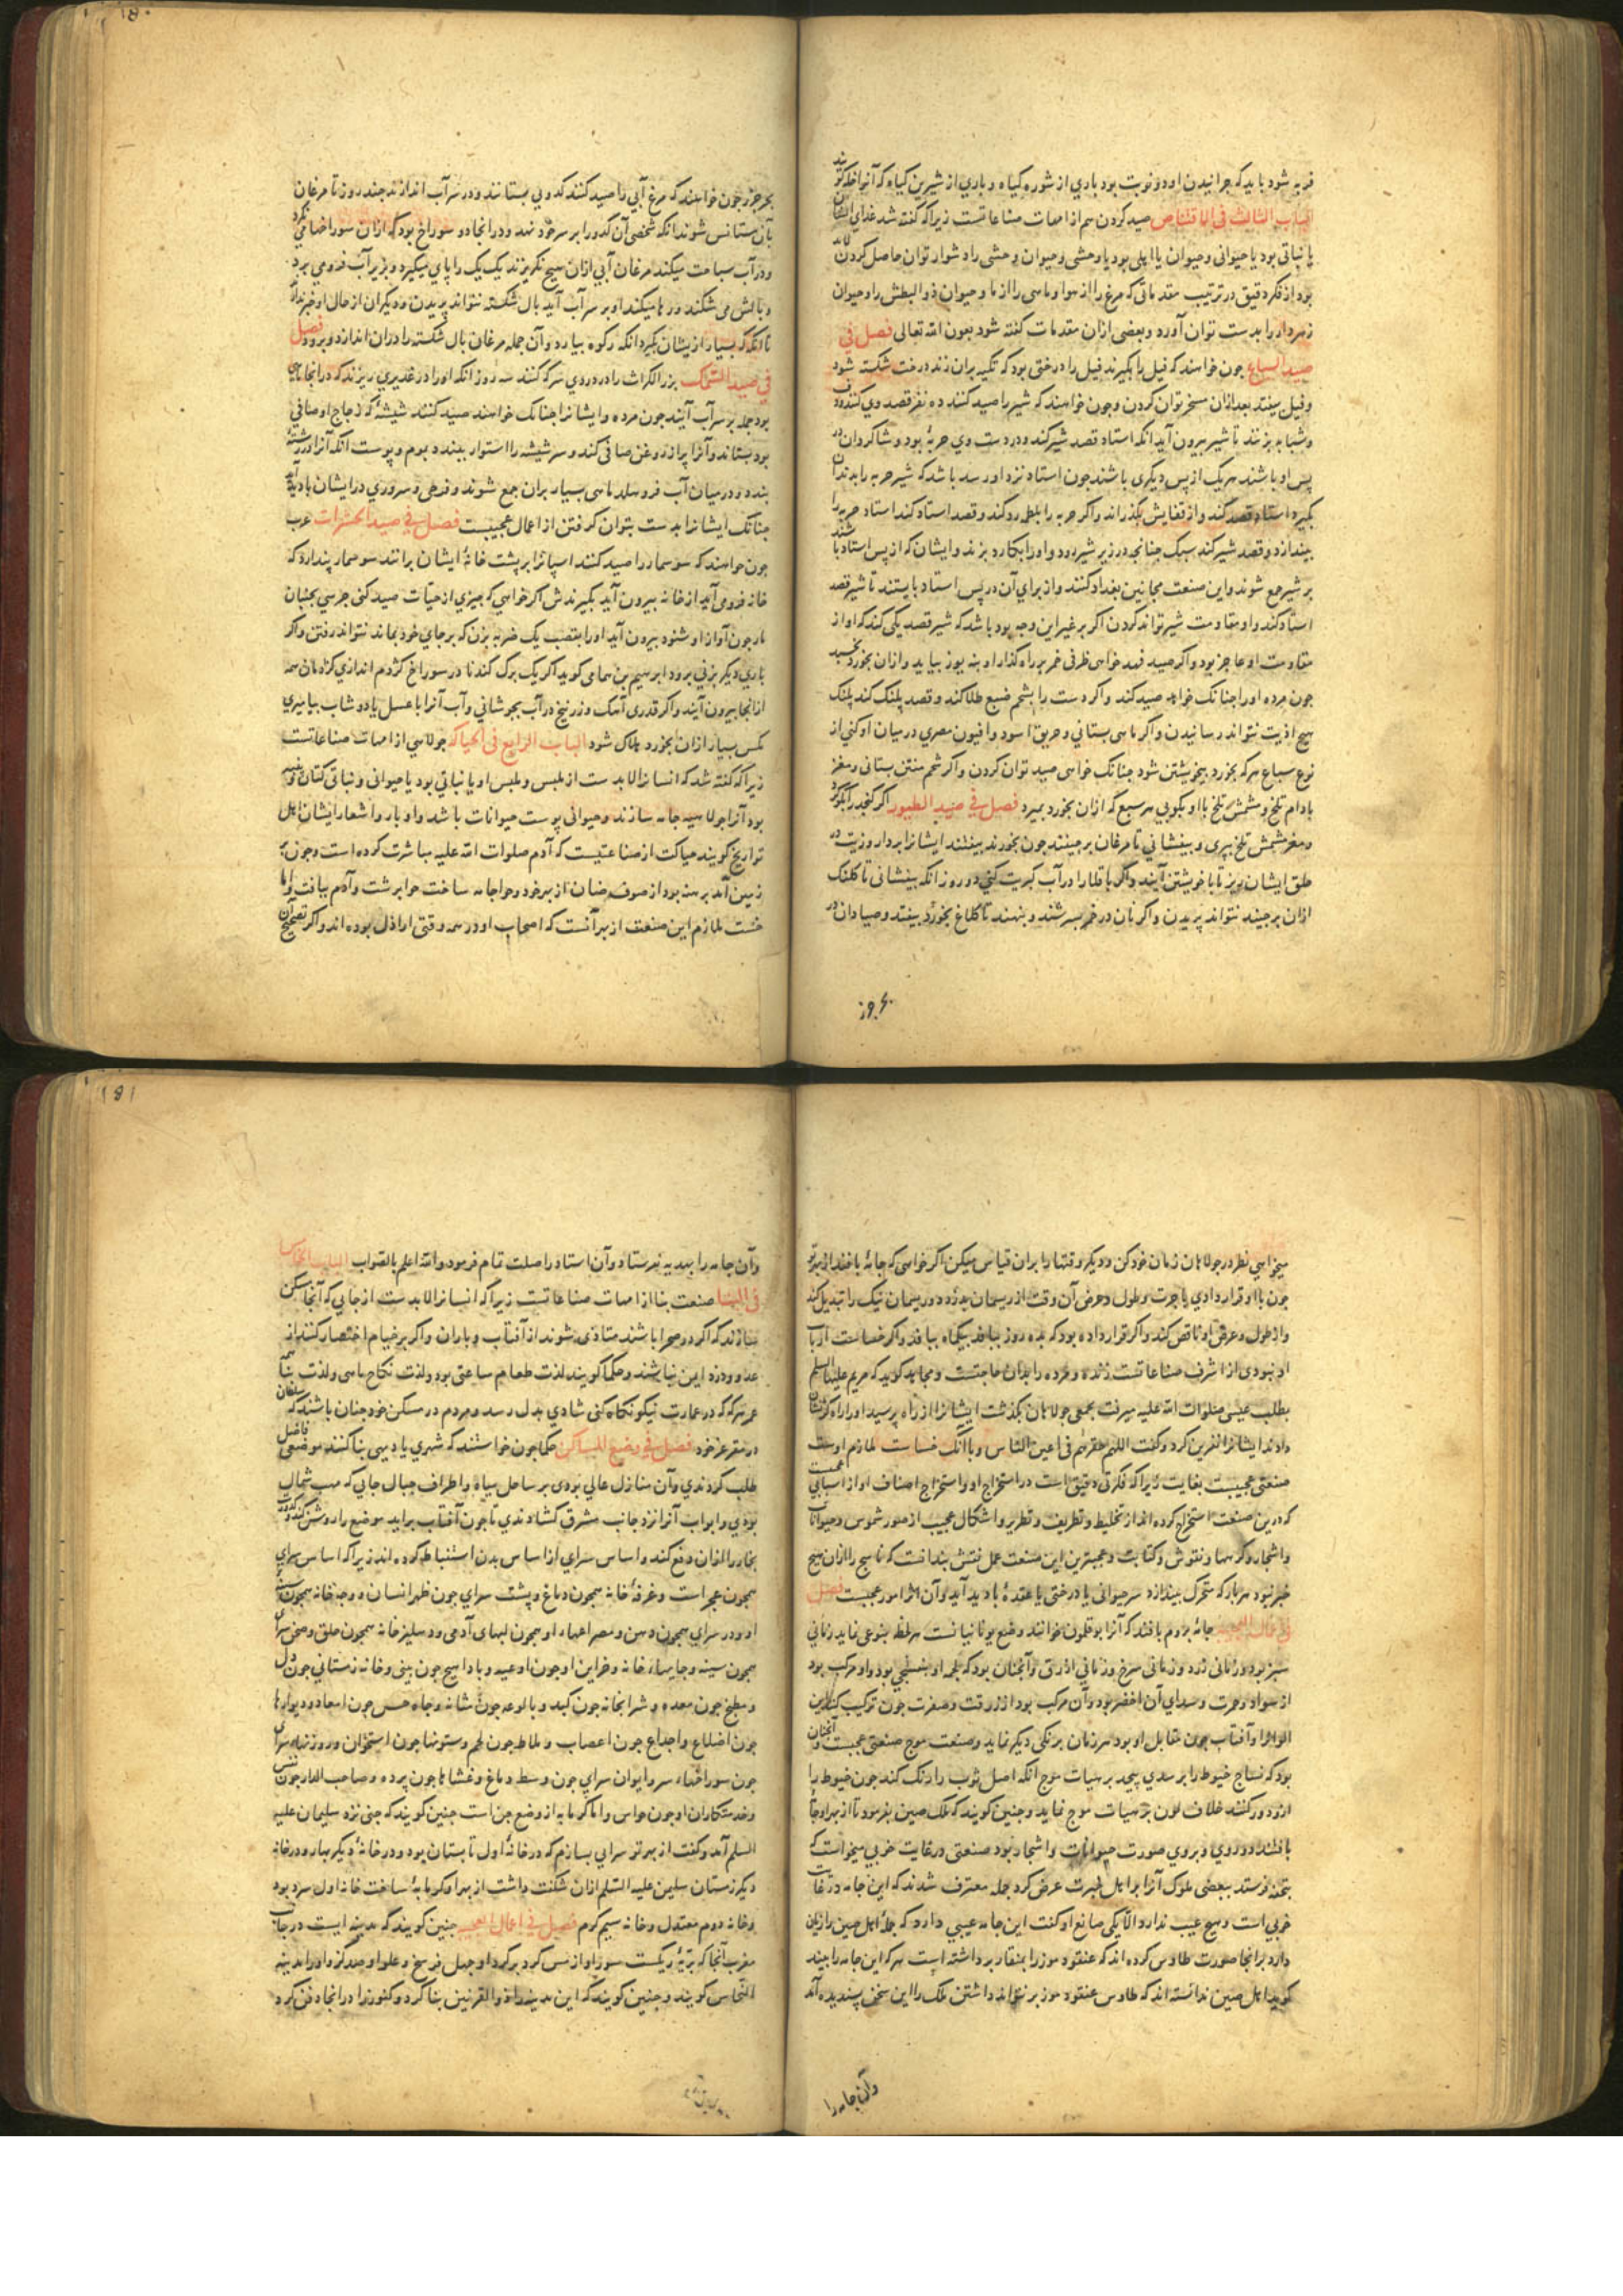 فربه شود باید که چرانیدن او دو نوبت بود باری از شوره گیاه و باری از شیرین گیاه که آنرا خله گویند
الباب الثالث فی الاقتناص صید کردن هم از امهات صناعاتست زیراکه گفته شد غذای انسان
یا نباتی بود یا حیوانی و حیوان یا اهلی بود یا وحشی و حیوان وحشی را دشوار توان حاصل کردن
بود از فکر دقیق در ترتیب مقدماتی که مرغ را از هوا و ماهی را از ما و حیوان ذو البطش را و حیوان
زهردار را بدست توان آورد و بعضی ازان مقدمات گفته شود بعون الله تعالی فصل فی
صید السباع چون خواهند که فیل را بگیرند فیل را درختی بود که تکیه بران زند درخت شکسته شود
و فیل بیفتد بعد ازان مسخر توان کردن و چون خواهند که شیر را صید کنند ده نفر قصد وی کنند و دف
و شبابه بزنند تا شیر بیرون آید انکه استاد قصد شیر کند و در دست وی حربهٔ بود و شاکردان در
پس او باشند هر یک از پس دیکری باشند چون استاد نزد او رسد باشد که شیر حربه را بدندان
بگیرد استاد قصد کند و از قفایش بگذراند و اکر حربه را بلطمه رد کند و قصد استاد کند استاد حربه را
بیندازد و قصد شیر کند سبک چنانچه در زیر شیر رود و او را بکارد بزند و ایشان که از پس استاد باشند
بر شیر جمع شوند و این صنعت مجانین بغداد کنند و از برای آن در پس استاد بایستند تا شیر قصد
استاد کند و او مقاومت شیر تواند کردن اکر بر غیر این وجه بود باشد که شیر قصد یکی کند که او از
مقاومت او عاجز بود و اکر صید فهد خواهی ظرفی خمر بر راه گذار او بنه یوز بیاید و ازان بخورد بخسبد
چون مرده او را چنانک خواهد صید کند و اکر دست را بشحم ضبع طلا کند و قصد پلنک کند پلنک
هیچ اذیت نتواند رسانیدن و اکر ماهی بستانی و خربق اسود و افیون مصری در میان او کنی از
نوع سباع هر که بخورد بیخویشتن شود چنانک خواهی صید توان کردن و اکر شحم منتن بستانی و مغز
بادام تلخ و مشمش تلخ با او بکوبی هر سبع که ازان بخورد بمیرد فصل فی صید الطیور اکر کنجد را بکوبی
و مغز مشمش تلخ بپری و بیفشانی تا مرغان برچینند چون بخورند بیفتند ایشانرا بردار و زیت در
حلق ایشان بریز تا با خویشتن آیند و اکر باقلا را در آب کبریت کنی دو روز انکه بیفشانی تا کلنک
ازان برچیند نتواند پریدن و اکر نان در خمر بسرشند و بنهند تا کلاغ بخورد بیفتد و صیادان در
بحر جزر
بحر جزر چون خواهند که مرغ آبی را صید کنند کدویی بستانند و در سر آب اندازند چند روز تا مرغان
بآن مستانس شوند انکه شخصی آن کدو را بر سر خود نهد و در انجا دو سوراخ بود که ازان سوراخها می نکرد
و در آب سباحت میکند مرغان آبی ازان هیچ نکریزند یک یک را پای میگیرد و بزیر آب فرو می برد
و بالش می شکند و رها میکند او بر سر آب آید بال شکسته نتواند پریدن و دیکران از حال او خبر ندارند
تا انکه که بسیار از یشان بگیرد انکه رکوه بیارد و آن جمله مرغان بال شکسته را دران اندازد و برود فصل
فی صید السمک بزر الکراث را در دردی سرکه کنند سه روز انکه او را در غدیری ریزند که در انجا ماهی
بود جمله بر سر آب آیند چون مرده و ایشانرا چنانک خواهند صید کنند شیشهٔ که زجاج او صافی
بود بستاند و آنرا پر از روغن صافی کند و سر شیشه را استوار ببندد بموم و پوست انکه آنرا در رشتهٔ
بندد و در میان آب فرو هلد ماهی بسیار بران جمع شوند و فرحی و سروری در ایشان بادید آید
چنانک ایشانرا بدست بتوان کرفتن از اعمال عجیبست فصل فی صید الحشرات عرب
چون خواهند که سوسمار را صید کنند اسپانرا بر پشت خانهٔ ایشان برانند سوسمار پندارد که
خانه فرو می آید از خانه بیرون آید بگیرندش اکر خواهی که چیزی از حیات صید کنی جرسی بجنبان
مار چون آواز او شنود بیرون آید او را بقضیب یک ضربه بزن که بر جای خود بماند نتواند رفتن و اکر
باری دیکر بزنی برود ابرهیم بن سهامی کوید اکر یک برک کندنا در سوراخ کژدم اندازی کژدمان همه
از انجا بیرون آیند و اکر قدری آهک و زرنیخ در آب بجوشانی و آب آنرا با عسل یا دوشاب بیامیزی
مکس بسیار ازان بخورد هلاک شود الباب الرابع فی الحیاکه جولاهی از امهات صناعاتست
زیراکه گفته شد که انسانرا لابدست از ملبس و ملبس او یا نباتی بود یا حیوانی و نباتی کتان و پنبه
بود آنرا جولاهه جامه سازند و حیوانی پوست حیوانات باشد و اوبار و اشعار ایشان اهل
تواریخ گویند حیاکت از صناعتیست که آدم صلوات الله علیه مباشرت کرده است و چون بر
زمین آمد برهنه بود از صوف ضان از بهر خود و حوا جامه ساخت حوا برشت و آدم ببافت و اما
خست لازم این صنعت از بهر آنست که اصحاب او در همه وقتی اراذل بوده اند و اکر تصحیح آن
میخواهی نظر در جولاهان زمان خود کن و دیکر وقتها را بران قیاس میکن اکر خواهی که جامهٔ بافند از بهر تو
چون با او قرار دادی باجرت و طول و عرض آن وقت از ریسمان بدزدد و ریسمان نیک را تبدیل کند
و از طول و عرض او ناقص کند و اکر قرار داده بود که بده روز ببافد بیکماه ببافد و اکر خساست ارباب
او نبودی از اشرف صناعاتست زنده و مرده را بدان حاجتست و مجاهد کوید که مریم علیها السلم
بطلب عیسی صلوات الله علیه میرفت بجمعی جولاهان بگذشت ایشانرا از راه پرسید او را راه کژ نشان
دادند ایشانرا نفرین کرد و کفت اللهم حقرهم فی اعین الناس و با انک خساست لازم اوست
صنعتی عجیبست بغایت زیراکه فکرتی دقیق است در استخراج او و استخراج اصناف او از اسبابی
که درین صنعت استخراج کرده اند از تخلیط و تطریف و تطریز و اشکال عجیب از صور شموس و حیوانات
و اشجار و کرهها و نقوش و کتابت و عجبترین این صنعت عمل نقش بندانست که ناسج را ازان هیچ
خبر نبود هر بار که متحرک بیندازد سر حیوانی یا درختی یا عقدهٔ بادید آید و آن از امور عجیبست فصل
فی اعمال العجیبه جامهٔ بروم بافند که آنرا بوقلمون خوانند وضع یونانیانست هر لحظه بنوعی نماید زمانی
سبز بود و زمانی زرد و زمانی سرخ و زمانی ازرق و آنچنان بود که لحمه او بنفسجی بود و او مرکب بود
از سواد و حمرت و سدای آن اخضر بود و آن مرکب بود از زرقت و صفرت چون ترکیب کند این
الوانرا و آفتاب چون مقابل او بود هر زمان برنکی دیکر نماید و صنعت موج صنعتی عجیبست و آنچنان
بود که نساج خیوط را بر سدی پیچد بر هیات موج انکه اصل ثوب را رنک کند چون خیوط را
ازو دور کنند خلاف لون بر هیات موج نماید و چنین گویند که ملک صین بفرمود تا از بهر او جامهٔ
بافتند دو روی و بر وی صورت حیوانات و اشجار بود صنعتی در غایت خوبی میخواست که
بتحفه فرستد ببعضی ملوک آنرا بر اهل خبرت عرض کرد جمله معترف شدند که این جامه در غایت
خوبی است و هیچ عیب ندارد الا یکی صانع او کفت این جامه عیبی دارد که جملهٔ اهل صین را زیان
دارد بر انجا صورت طاوس کرده اند که عنقود موز را بمنقار برداشته است هر که این جامه را بیند
گوید اهل صین ندانسته اند که طاوس عنقود موز بر نتواند داشتن ملک را این سخن پسندیده آمد
وآن جامه را
وآن جامه را بهدیه نفرستاد و آن استاد را صلت تمام فرمود و الله اعلم بالصواب الباب الخامس
فی البنا صنعت بنا از امهات صناعاتست زیراکه انسانرا لابدست از جایی که آنجا مسکن
سازند که اکر در صحرا باشند متاذی شوند از آفتاب و باران و اکر بر خیام اختصار کنند از
عدو و دزد ایمن نباشند و حکما گویند لذت طعام ساعتی بود و لذت نکاح ماهی و لذت بنا همه
عمر هر که که در عمارت نیکو نکاه کنی شادی بدل رسد و مردم در مسکن خود چنان باشند که سلطان
در مقر عز خود فصل فی وضع المساکن حکما چون خواستند که شهری یا دیهی بنا کنند موضعی فاضل
طلب کردندی و آن منازل عالی بودی بر ساحل میاه و اطراف جبال جایی که مهب شمال
بودی و ابواب آنرا نزد جانب مشرق گشادندی تا چون آفتاب براید موضع را روشن کند و کدورت
بخار را ازان دفع کند و اساس سرای از اساس بدن استنباط کرده اند زیراکه اساس سرای
همچون عجز است و غرفهٔ خانه همچون دماغ و پشت سرای چون ظهر انسان و وجه خانه همچون سینهٔ
او و در سرای همچون دهن و مصراعهاء او همچون لبهای آدمی و دهلیز خانه همچون حلق و صحن سرای
همچون سینه و جایهاء خانه و خزاین او چون اوعیه و باداهیج چون بینی و خانه زمستانی چون دل
و مطبخ چون معده و شرابخانه چون کبد و بالوعه چون مثانه و چاه حس چون امعا و دیوارها
چون اضلاع و اجذاع چون اعصاب و ملاط چون لحم و ستونها چون استخوان و روزنهاء سرای
چون سوراخهاء سر و ایوان سرای چون وسط دماغ و غشاها چون پرده و صاحب الدار چون نفس
و خدمتکاران او چون حواس و اما کرمابه از وضع جن است چنین گویند که جنی نزد سلیمان علیه
السلم آمد و کفت از بهر تو سرایی بسازم که در خانهٔ اول تابستان بود و در خانهٔ دیکر بهار و در خانه
دیکر زمستان سلیمن علیه السلم ازان شکفت داشت از بهر او کرمابهٔ ساخت خانه اول سرد بود
و خانه دوم معتدل و خانه سیم کرم فصل فی اعمال العجیبه چنین گویند که مدینه ایست در جانب
مغرب آنجا که بریهٔ ریکست سور او از مس کرد بر کرد او چهل فرسخ و علو او صد گز و او را مدینه
النحاس گویند و چنین گویند که این مدینه را ذو القرنین بنا کرد و کنوز را در انجا دفن کرد